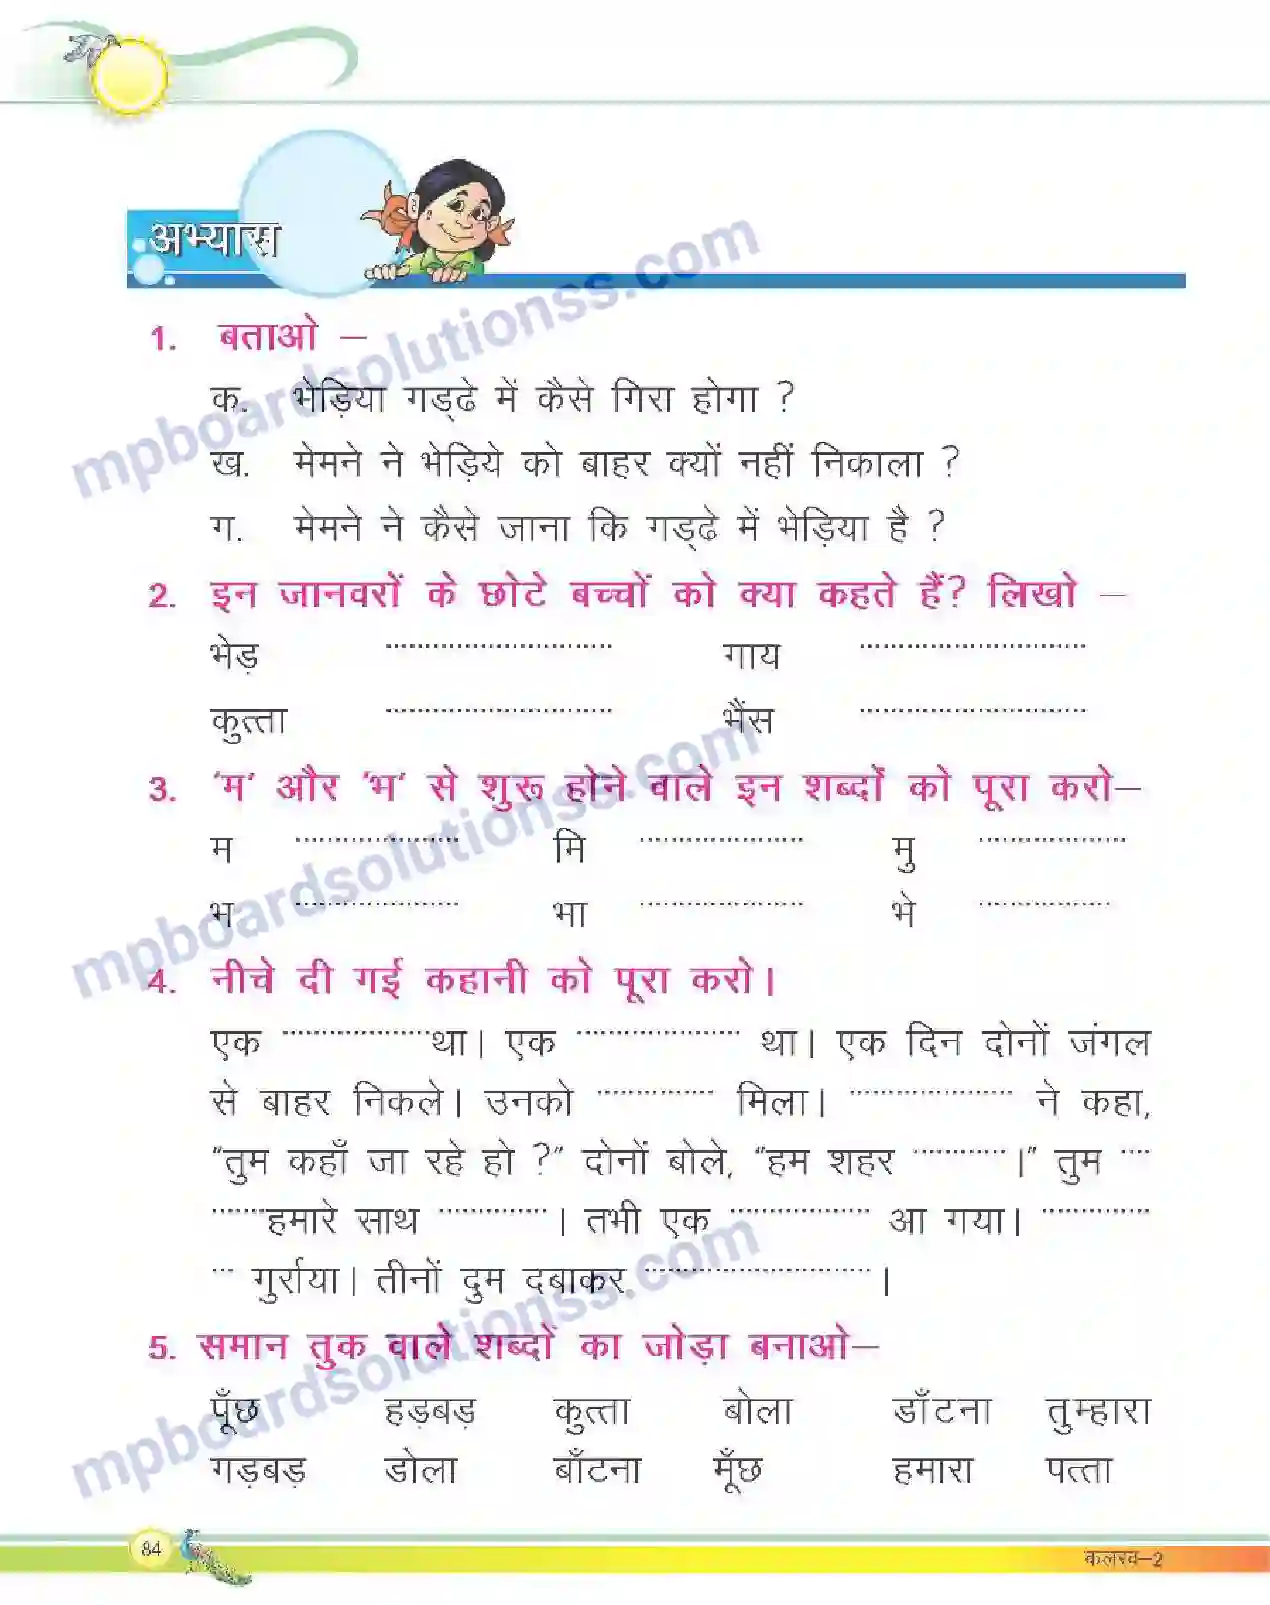 अभ्यास
1. बताओ –
क. भेड़िया गड्ढे में कैसे गिरा होगा ?
ख. मेमने ने भेड़िये को बाहर क्यों नहीं निकाला ?
ग. मेमने ने कैसे जाना कि गड्ढे में भेड़िया है ?
2. इन जानवरों के छोटे बच्चों को क्या कहते हैं? लिखो –
भेड़ ............................ गाय ............................
कुत्ता ............................ भैंस ............................
3. 'म' और 'भ' से शुरू होने वाले इन शब्दों को पूरा करो–
म .................... मि .................... मु ..................
भ .................... भा .................... भे ................
4. नीचे दी गई कहानी को पूरा करो।
एक ..................था। एक .................... था। एक दिन दोनों जंगल
से बाहर निकले। उनको .............. मिला। .................... ने कहा,
"तुम कहाँ जा रहे हो ?" दोनों बोले, "हम शहर ............।" तुम ....
.......हमारे साथ .............। तभी एक ................. आ गया। .............
... गुर्राया। तीनों दुम दबाकर ............................।
5. समान तुक वाले शब्दों का जोड़ा बनाओ–
पूँछ हड़बड़ कुत्ता बोला डाँटना तुम्हारा
गड़बड़ डोला बाँटना मूँछ हमारा पत्ता
84
कलरव–2
mpboardsolutionss.com
mpboardsolutionss.com
mpboardsolutionss.com